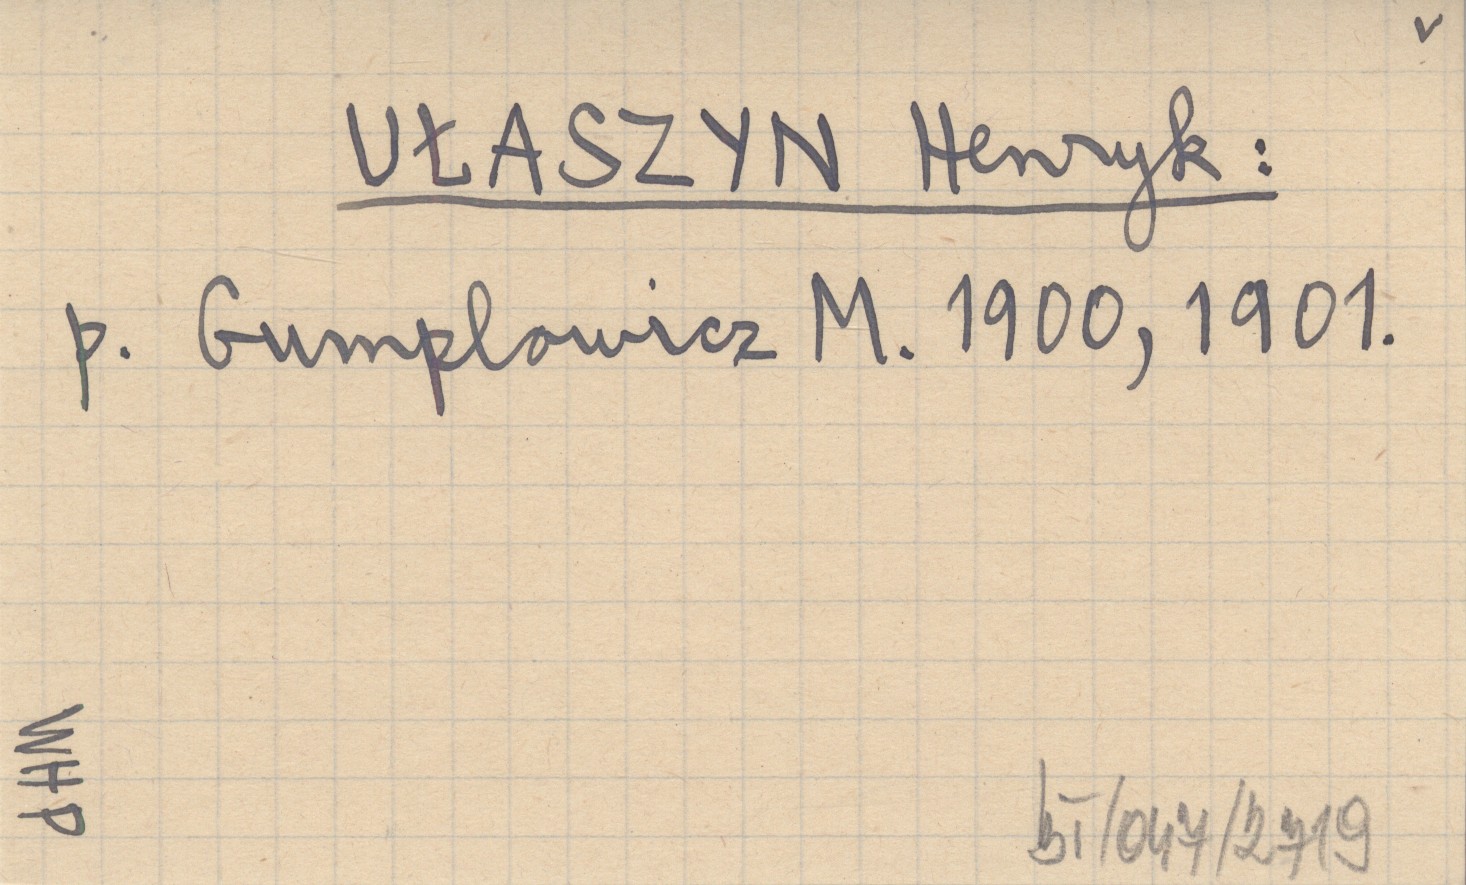 v
UŁASZYN Henryk:
p. Gumplowicz M. 1900, 1901.
WHP
bI/047/2719